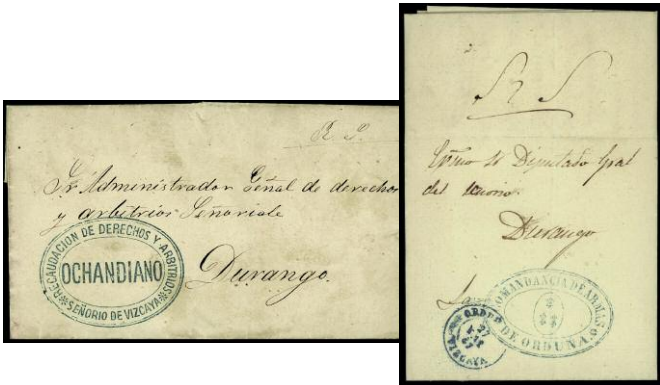 R. S.
Sr. Administrador Gēnal de derechos
y arbitrios Señoriale
Durango.
RECAUDACION DE DERECHOS Y ARBITRIOS
OCHANDIANO
SEÑORIO DE VIZCAYA
R S
Exmo Sr Diputado Gral
del
Durango
COMANDANCIA DE ARMAS
DE ORDUÑA
VIZCAYA